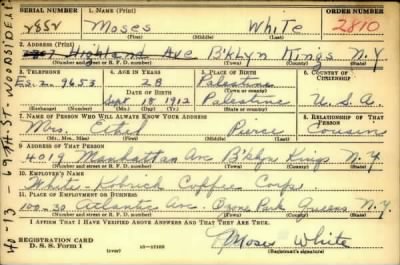 SERIAL NUMBER 1. NAME (Print) ORDER NUMBER
Moses White 2810
(First) (Middle) (Last)
2. ADDRESS (Print)
Highland Ave B'klyn Kings N.Y.
(Number and street or R. F. D. number) (Town) (County) (State)
3. TELEPHONE 4. AGE IN YEARS 5. PLACE OF BIRTH 6. COUNTRY OF CITIZENSHIP
9653 28 Palestine
DATE OF BIRTH
Sept 18 1912 Palestine U.S.A.
(Mo.) (Day) (Yr.)
7. NAME OF PERSON WHO WILL ALWAYS KNOW YOUR ADDRESS 8. RELATIONSHIP OF THAT PERSON
Mrs. Ethel Pierce Cousin
(Mr., Mrs., Miss) (First) (Middle) (Last)
9. ADDRESS OF THAT PERSON
4019 Manhattan Ave B'klyn Kings N.Y.
(Number and street or R. F. D. number) (Town) (County) (State)
10. EMPLOYER'S NAME
White Coffee Corp
11. PLACE OF EMPLOYMENT OR BUSINESS
100-30 Atlantic Ave. Ozone Park Queens N.Y.
(Number and street or R. F. D. number) (Town) (County) (State)
I AFFIRM THAT I HAVE VERIFIED ABOVE ANSWERS AND THAT THEY ARE TRUE.
REGISTRATION CARD
D. S. S. FORM 1 (over) Moses White
(Registrant's signature)
40-13-69TH-ST. WOODSIDE